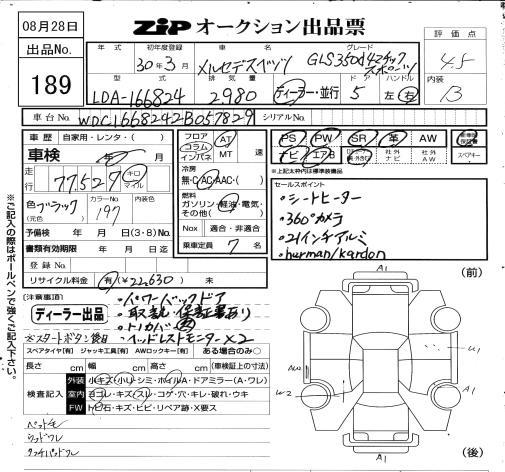 08月28日
ZIP オークション出品票
出品No.
189
年式
初年度登録
車名
グレード
評価点
30年3月
メルセデスベンツ
GLS350d4マチック
スポーツ
4.5
型式
排気量
ドア
ハンドル
内装
LDA-166824
2980
ディーラー・並行
5
左 右
B
車台No.
WDC1668242B057829
シリアルNo.
車歴
自家用・レンタ・( )
車検
年 月
走行
77,527
キロ
マイル
色
ブラック
(元色)
カラーNo.
197
内装色
予備検 年 月 日(3・8)No.
書類有効期限 年 月 日迄
登録No.
リサイクル料金 有(¥22,630) 未
フロア
コラム
インパネ
AT
MT
速
冷房
無・C・AC・AAC・( )
燃料
ガソリン・軽油・電気・
その他( )
Nox
適合・非適合
乗車定員
7 名
PS PW SR 革 AW
ナビ エアB 社外ナビ 社外AW スペアキー
※上記太枠内は標準装備品
セールスポイント
・シートヒーター
・360°カメラ
・21インチアルミ
・harman/kardon
(注意事項)
ディーラー出品
・パワーバックドア
・取説 保証書あり
・トノカバー有
※スタートボタン後日
・ヘッドレストモニター×2
スペアタイヤ[有] ジャッキ工具[有] AWロックキー[有] ある場合のみ○
長さ cm 幅 cm 高さ cm (車検証上の寸法)
検査記入
外装
小キズ・小リ・シミ・ホイルA・ドアミラー(A・ワレ)
室内
ヨゴレ・キズ・スレ・コゲ・穴・キレ・破れ・ウキ
FW
トビ石・キズ・ヒビ・リペア跡・X要ス
※ご記入の際はボールペンで強くご記入下さい。
(前)
A1
U1
W2
A1
A1
(後)